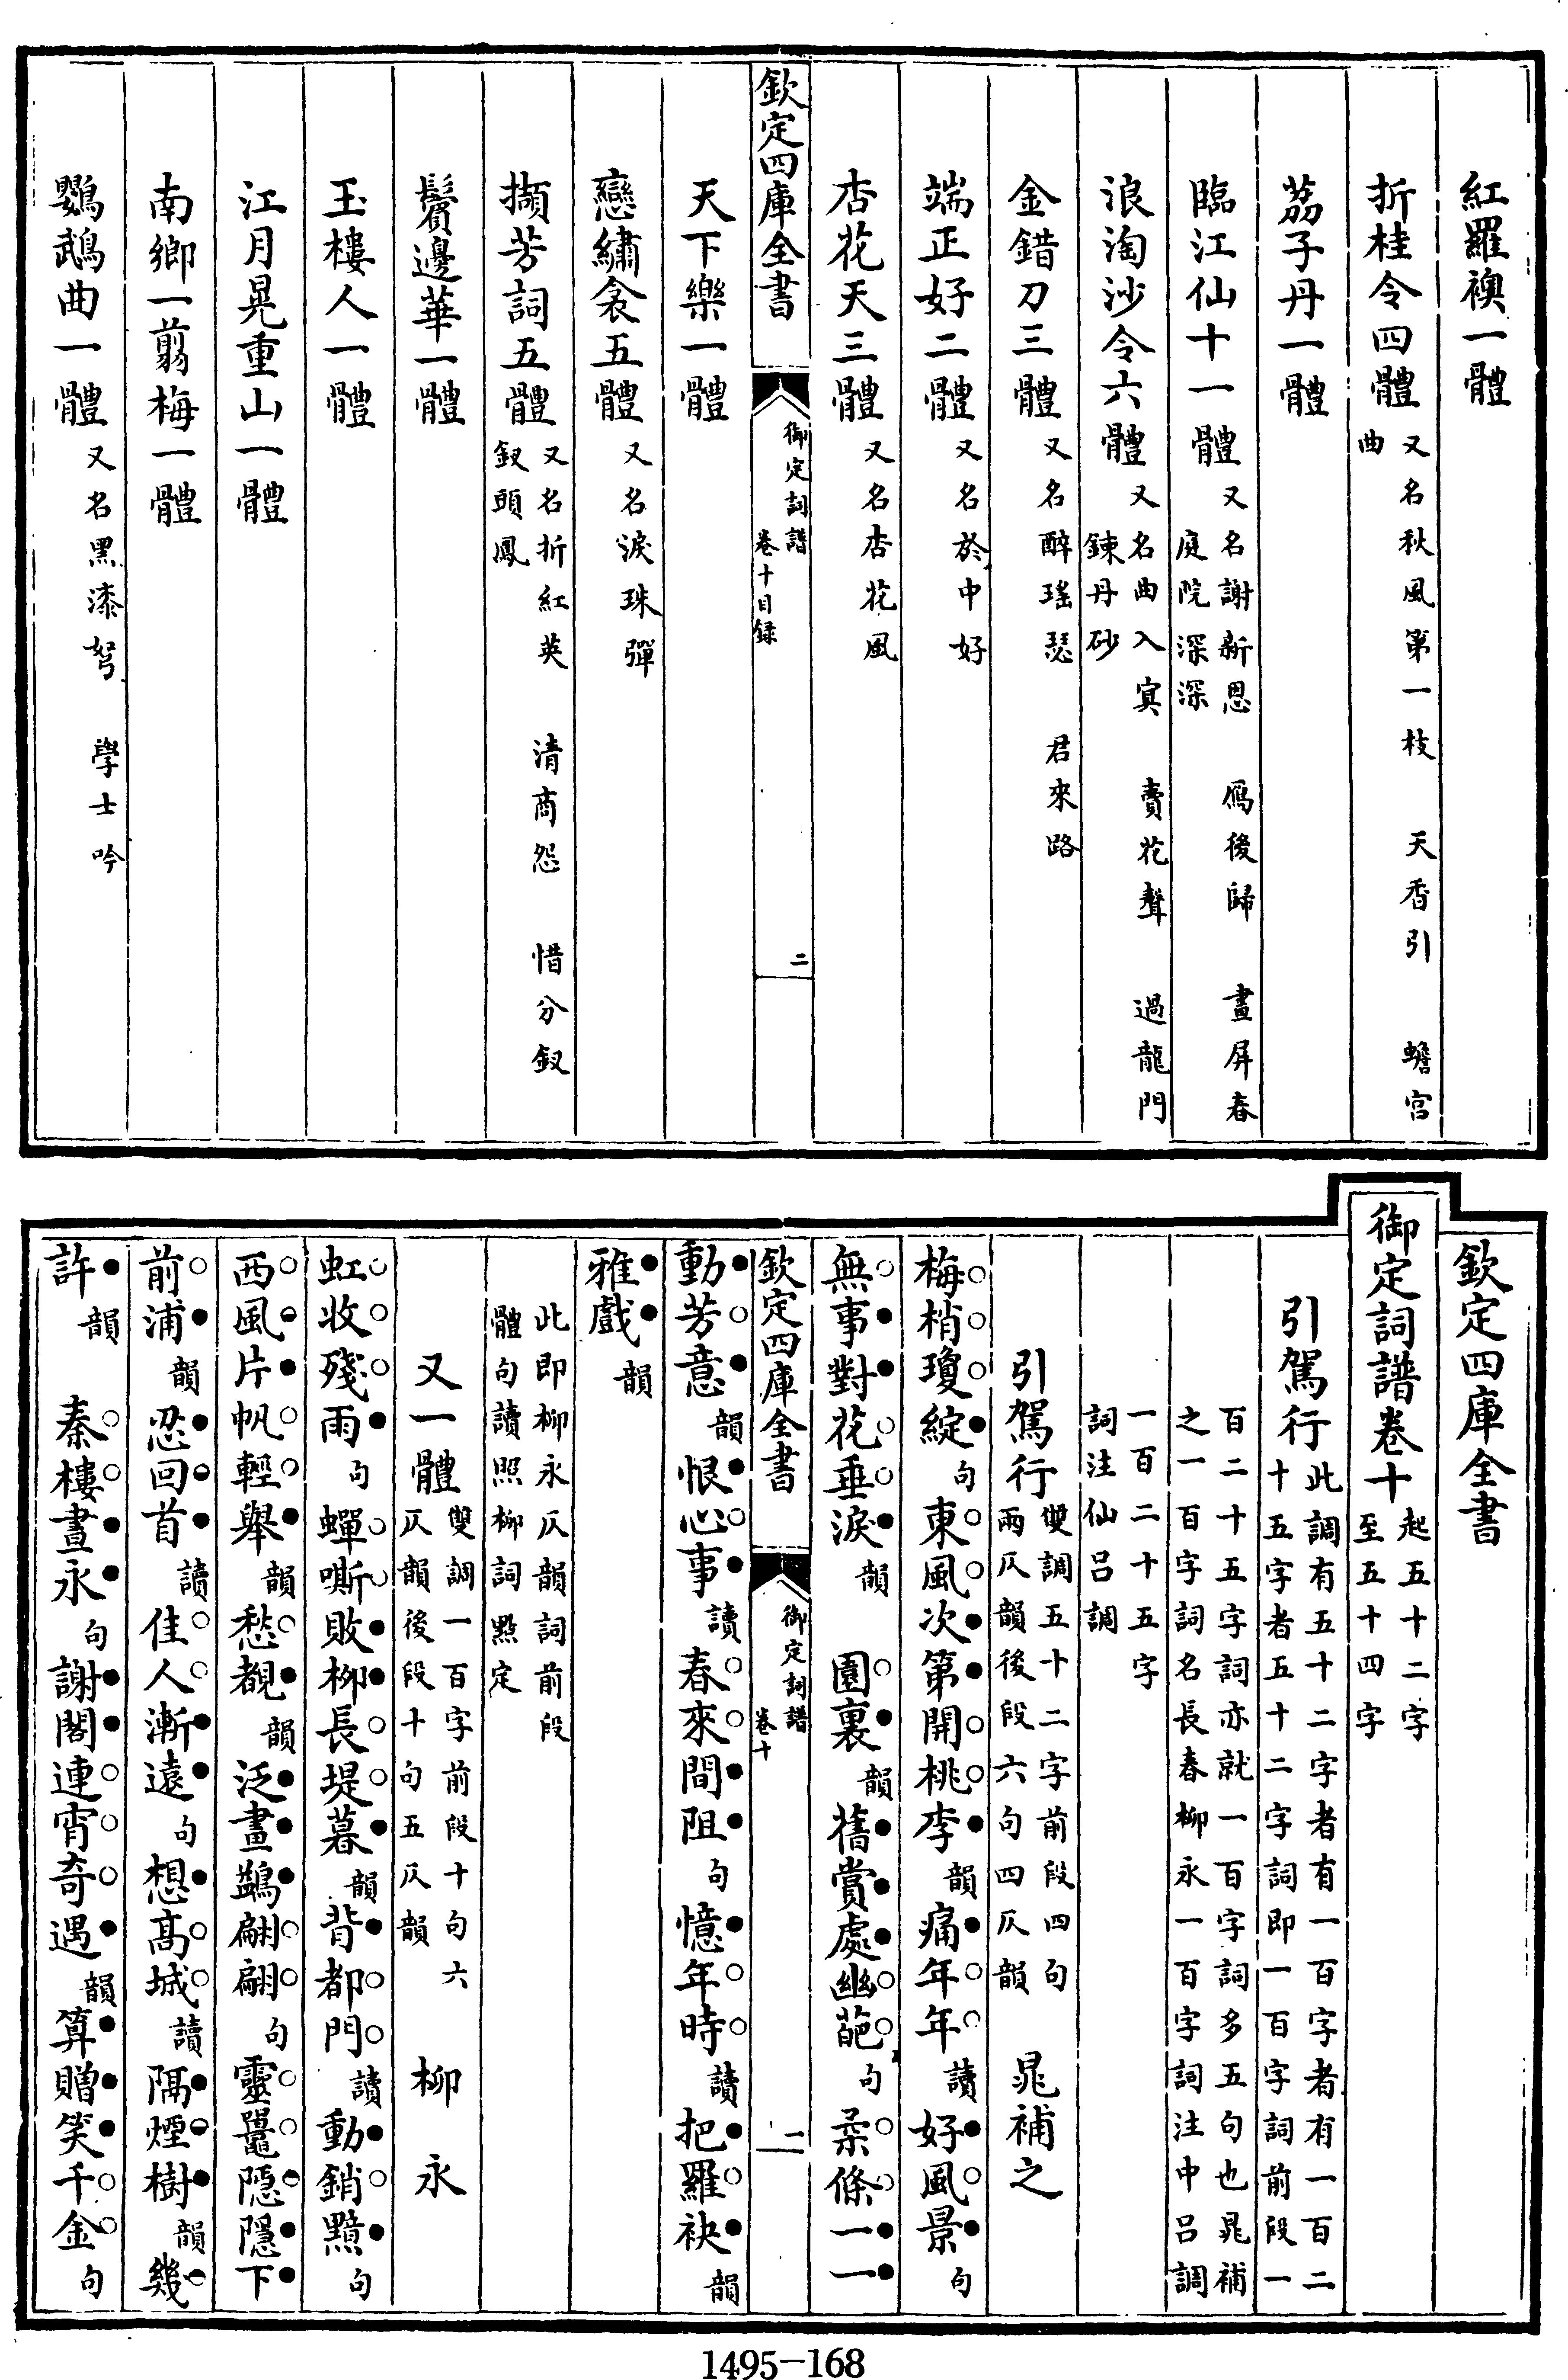 紅羅襖一體
折桂令四體又名秋風第一枝 天香引 蟾宮
曲
茘子丹一體
臨江仙十一體又名謝新恩 鴈後歸 畫屏春
庭院深深
浪淘沙令六體又名曲入冥 賣花聲 過龍門
鍊丹砂
金錯刀三體又名醉瑤瑟 君來路
端正好二體又名於中好
杏花天三體又名杏花風
欽定四庫全書 御定詞譜
卷十目録 二
天下樂一體
戀繡衾五體又名淚珠彈
擷芳詞五體又名折紅英 清商怨 惜分釵
釵頭鳳
鬢邊華一體
玉樓人一體
江月晃重山一體
南鄉一翦梅一體
鸚鵡曲一體又名黑漆弩 學士吟
欽定四庫全書
御定詞譜卷十起五十二字
至五十四字
引駕行此調有五十二字者有一百字者有一百二
十五字者五十二字詞即一百字詞前段一
百二十五字詞亦就一百字詞多五句也晁補
之一百字詞名長春柳永一百字詞注中呂調
一百二十五字
詞注仙呂調
引駕行雙調五十二字前段四句
兩仄韻後段六句四仄韻 晁補之
梅梢瓊綻句東風次第開桃李韻痛年年讀好風景句
無事對花垂淚韻 園裏韻舊賞處幽葩句柔條一一
欽定四庫全書 御定詞譜
卷十 一
動芳意韻恨心事讀春來間阻句憶年時讀把羅袂韻
雅戲韻
此即柳永仄韻詞前段
體句讀照柳詞㸃定
又一體雙調一百字前段十句六
仄韻後段十句五仄韻 柳永
虹收殘雨句蟬嘶敗柳長堤暮韻背都門讀動銷黯句
西風片帆輕舉韻愁覩韻泛畫鷁翩翩句靈鼉隱隱下
前浦韻忍回首讀佳人漸遠句想高城讀隔煙樹韻幾
許韻 秦樓晝永句謝閣連宵奇遇韻算贈笑千金句
1495—168